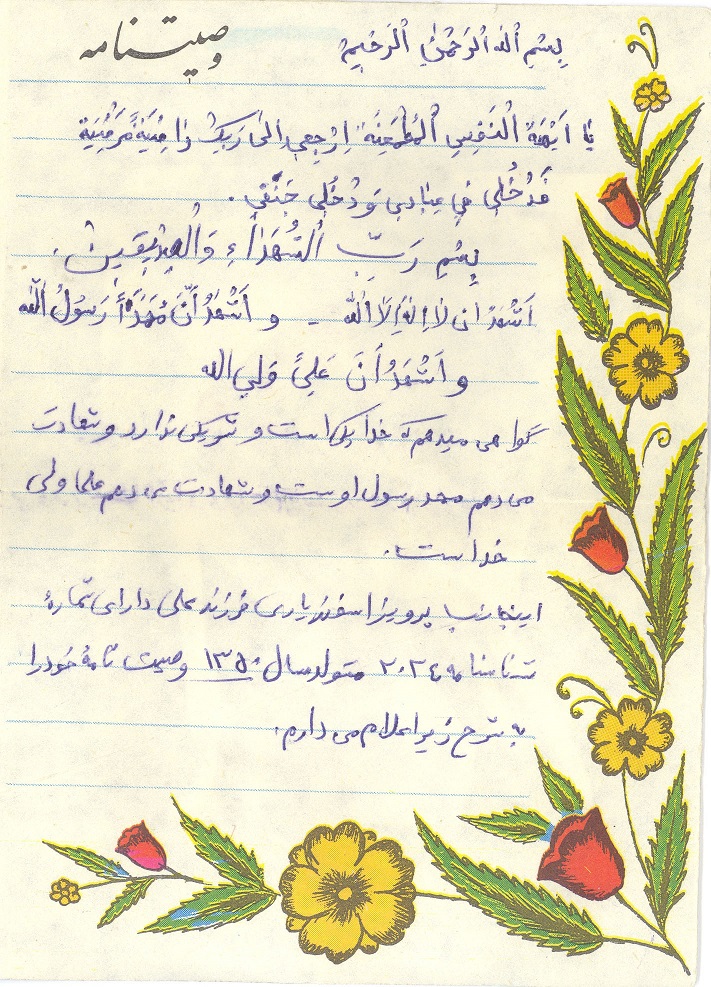 وصیتنامه
بِسْمِ اللهِ الرَحْمٰنِ الرَحیمْ
یا اَیَهَةُ الْنَفْسِ الْمُطْمَعِنَةُ اِرْجِعی اِلیٰ رَبِکِ رٰاضِیَةً مَرْضِیَة
فَدْخُلی فی عِبٰادی وَدْخُلی جَنَّتی .
بِسْمِ رَبِّ الْشُهَدٰاءِ وَالْصِدیٖقینْ .
اَشْهَدُ ان لاٰ اِلٰهَ اِلَّا الله - و اَشْهَدُ اَنَّ مُحَمَّدًاً رَسُولُ الله
و اَشْهَدُ اَنَ عَلیً وَلی الله
گواهی میدهم که خدا یکی است و شریکی ندارد و شهادت
می دهم محمد رسول اوست و شهادت می دهم علی ولی
خدا ست .
اینجانب پرویز اسفندیاری فرزند علی دارای شمارهٔ
شناسنامه ۲۰۲٤ متولد سال ۱۳۵۰ وصیت نامهٔ خود را
به شرح زیر اعلام می دارم .